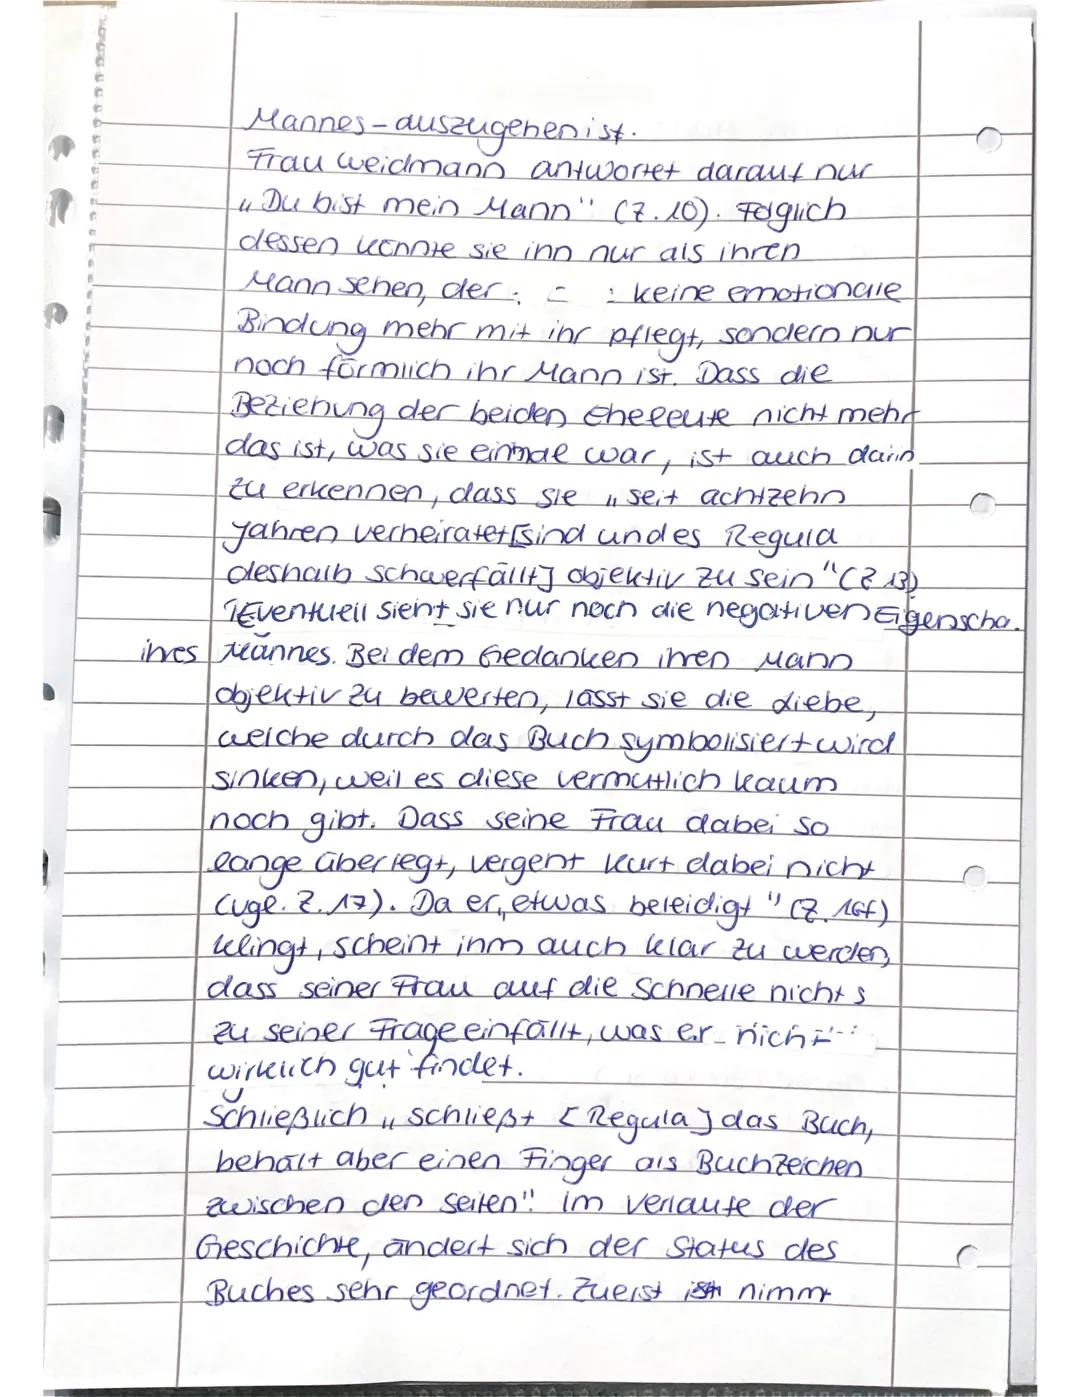 Mannes-auszugehen ist.
Frau Weidmann antwortet darauf nur
„Du bist mein Mann" (Z.10). Folglich
dessen könnte sie ihn nur als ihren
Mann sehen, der keine emotionale
Bindung mehr mit ihr pflegt, sondern nur
noch förmlich ihr Mann ist. Dass die
Beziehung der beiden Eheleute nicht mehr
das ist, was sie einmal war, ist auch darin
zu erkennen, dass sie „seit achtzehn
Jahren verheiratet [sind und es Regula
deshalb schwerfällt] objektiv zu sein" (Z.13)
Eventuell sieht sie nur noch die negativen Eigenscha.
ihres Mannes. Bei dem Gedanken ihren Mann
objektiv zu bewerten, lässt sie die Liebe,
welche durch das Buch symbolisiert wird
sinken, weil es diese vermutlich kaum
noch gibt. Dass seine Frau dabei so
lange überlegt, vergeht Kurt dabei nicht
(vgl. Z.17). Da er „etwas beleidigt" (Z.16f)
klingt, scheint ihm auch klar zu werden,
dass seiner Frau auf die Schnelle nichts
zu seiner Frage einfällt, was er nicht
wirklich gut findet.
Schließlich „schließt [Regula] das Buch,
behält aber einen Finger als Buchzeichen
zwischen den Seiten". Im Verlaufe der
Geschichte, ändert sich der Status des
Buches sehr geordnet. Zuerst nimmt